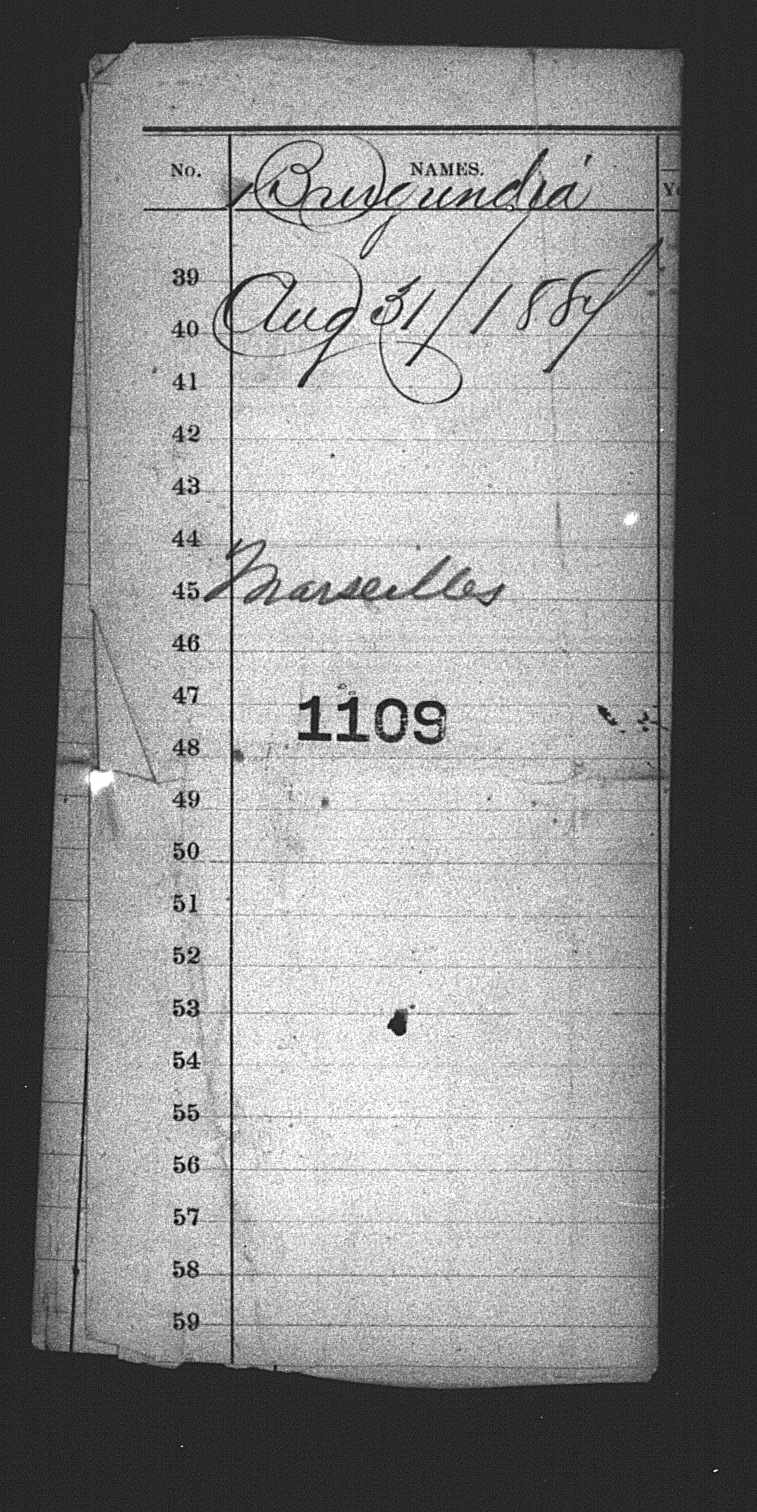 No. NAMES. Y
Burgundia
39
Aug 31/1887
40
41
42
43
44
Marseilles
45
46
47
1109
48
49
50
51
52
53
54
55
56
57
58
59